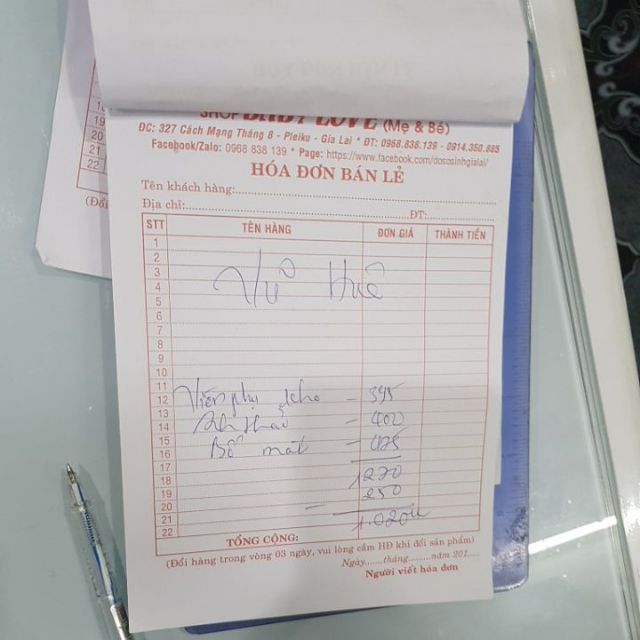 SHOP BABY LOVE (Mẹ & Bé)
ĐC: 327 Cách Mạng Tháng 8 - Pleiku - Gia Lai * ĐT: 0968.838.139 - 0914.350.885
Facebook/Zalo: 0968 838 139 * Page: https://www.facebook.com/dososinhgialai/
HÓA ĐƠN BÁN LẺ
Tên khách hàng:
Địa chỉ: ĐT:
STT TÊN HÀNG ĐƠN GIÁ THÀNH TIỀN
1
2
3
4
Vũ Huê
5
6
7
8
9
10
11
12 Viên phụ - 395
13
14 - 400
15
16 Bổ mắt -
17
18 1270
19 250
20 -
21 1.020
22
TỔNG CỘNG:
(Đổi hàng trong vòng 03 ngày, vui lòng cầm HĐ khi đổi sản phẩm)
Ngày......tháng........năm 201....
Người viết hóa đơn
(Đổi